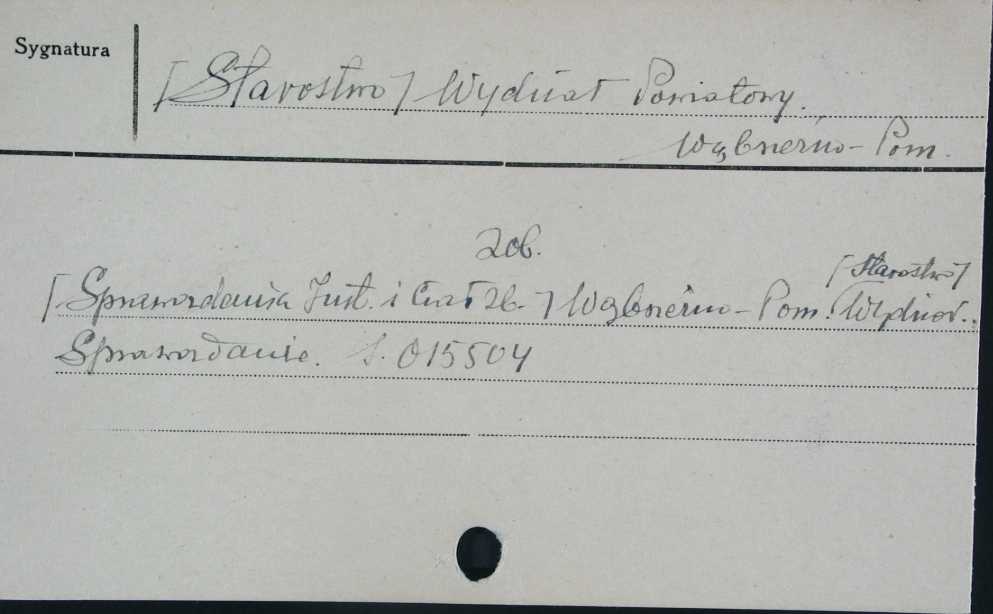 Sygnatura
[Starostwo] Wydział Powiatowy.
Wąbrzeźno - Pom.
Zob.
[Starostwo]
[Sprawozdania Inst. i Ciał Zb.] Wąbrzeźno - Pom. Wydział..
Sprawozdanie. S. 015504